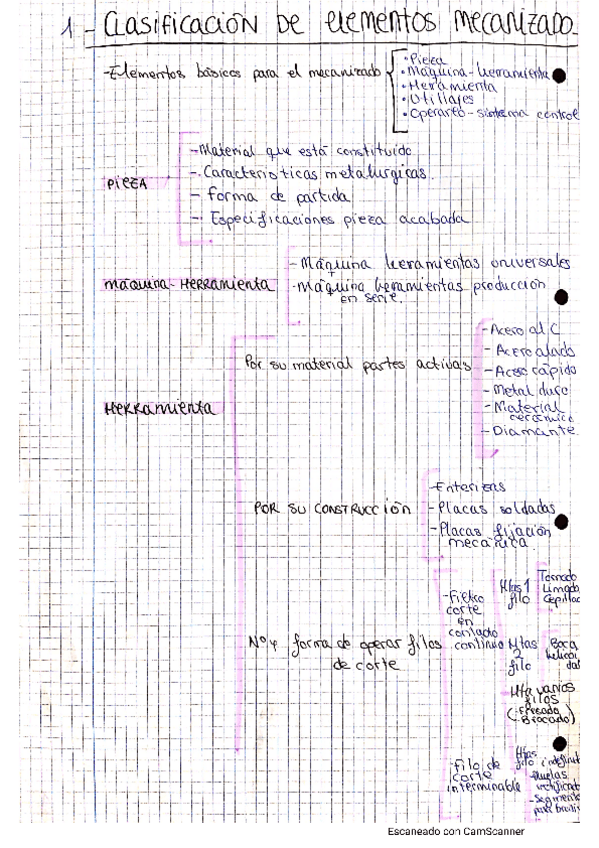 1 - Clasificación de elementos mecanizado.
-Elementos básicos para el mecanizado
• Pieza
• Máquina-herramienta
• Herramienta
• Utillajes
• Operario-sistema control
PIEZA
-Material que está constituido
-Características metalurgicas.
- forma de partida
- Especificaciones pieza acabada
Máquina-Herramienta
-Máquina herramientas universales
-Máquina herramientas producción
en serie.
Herramienta
Por su material partes activas
-Acero al C
-Acero alado
-Acero rápido
-Metal duro
-Material
cerámico
-Diamante
POR SU CONSTRUCCIÓN
-Enterizas
-Placas soldadas
-Placas fijación
mecánica.
Nº y forma de operar filos
de corte
-Filo
corte
en
contacto
continuo
Htas 1
filo
Torneado
Limado
Cepillad
Htas
2
filo
Broca
helicoi
dal
Hta varios
filos
(-Fresado
-Brocado)
-Filo de
corte
interminable
Htas
filo indefinid
Muelas
rectificad
-Segmento
para bruñi
Escaneado con CamScanner